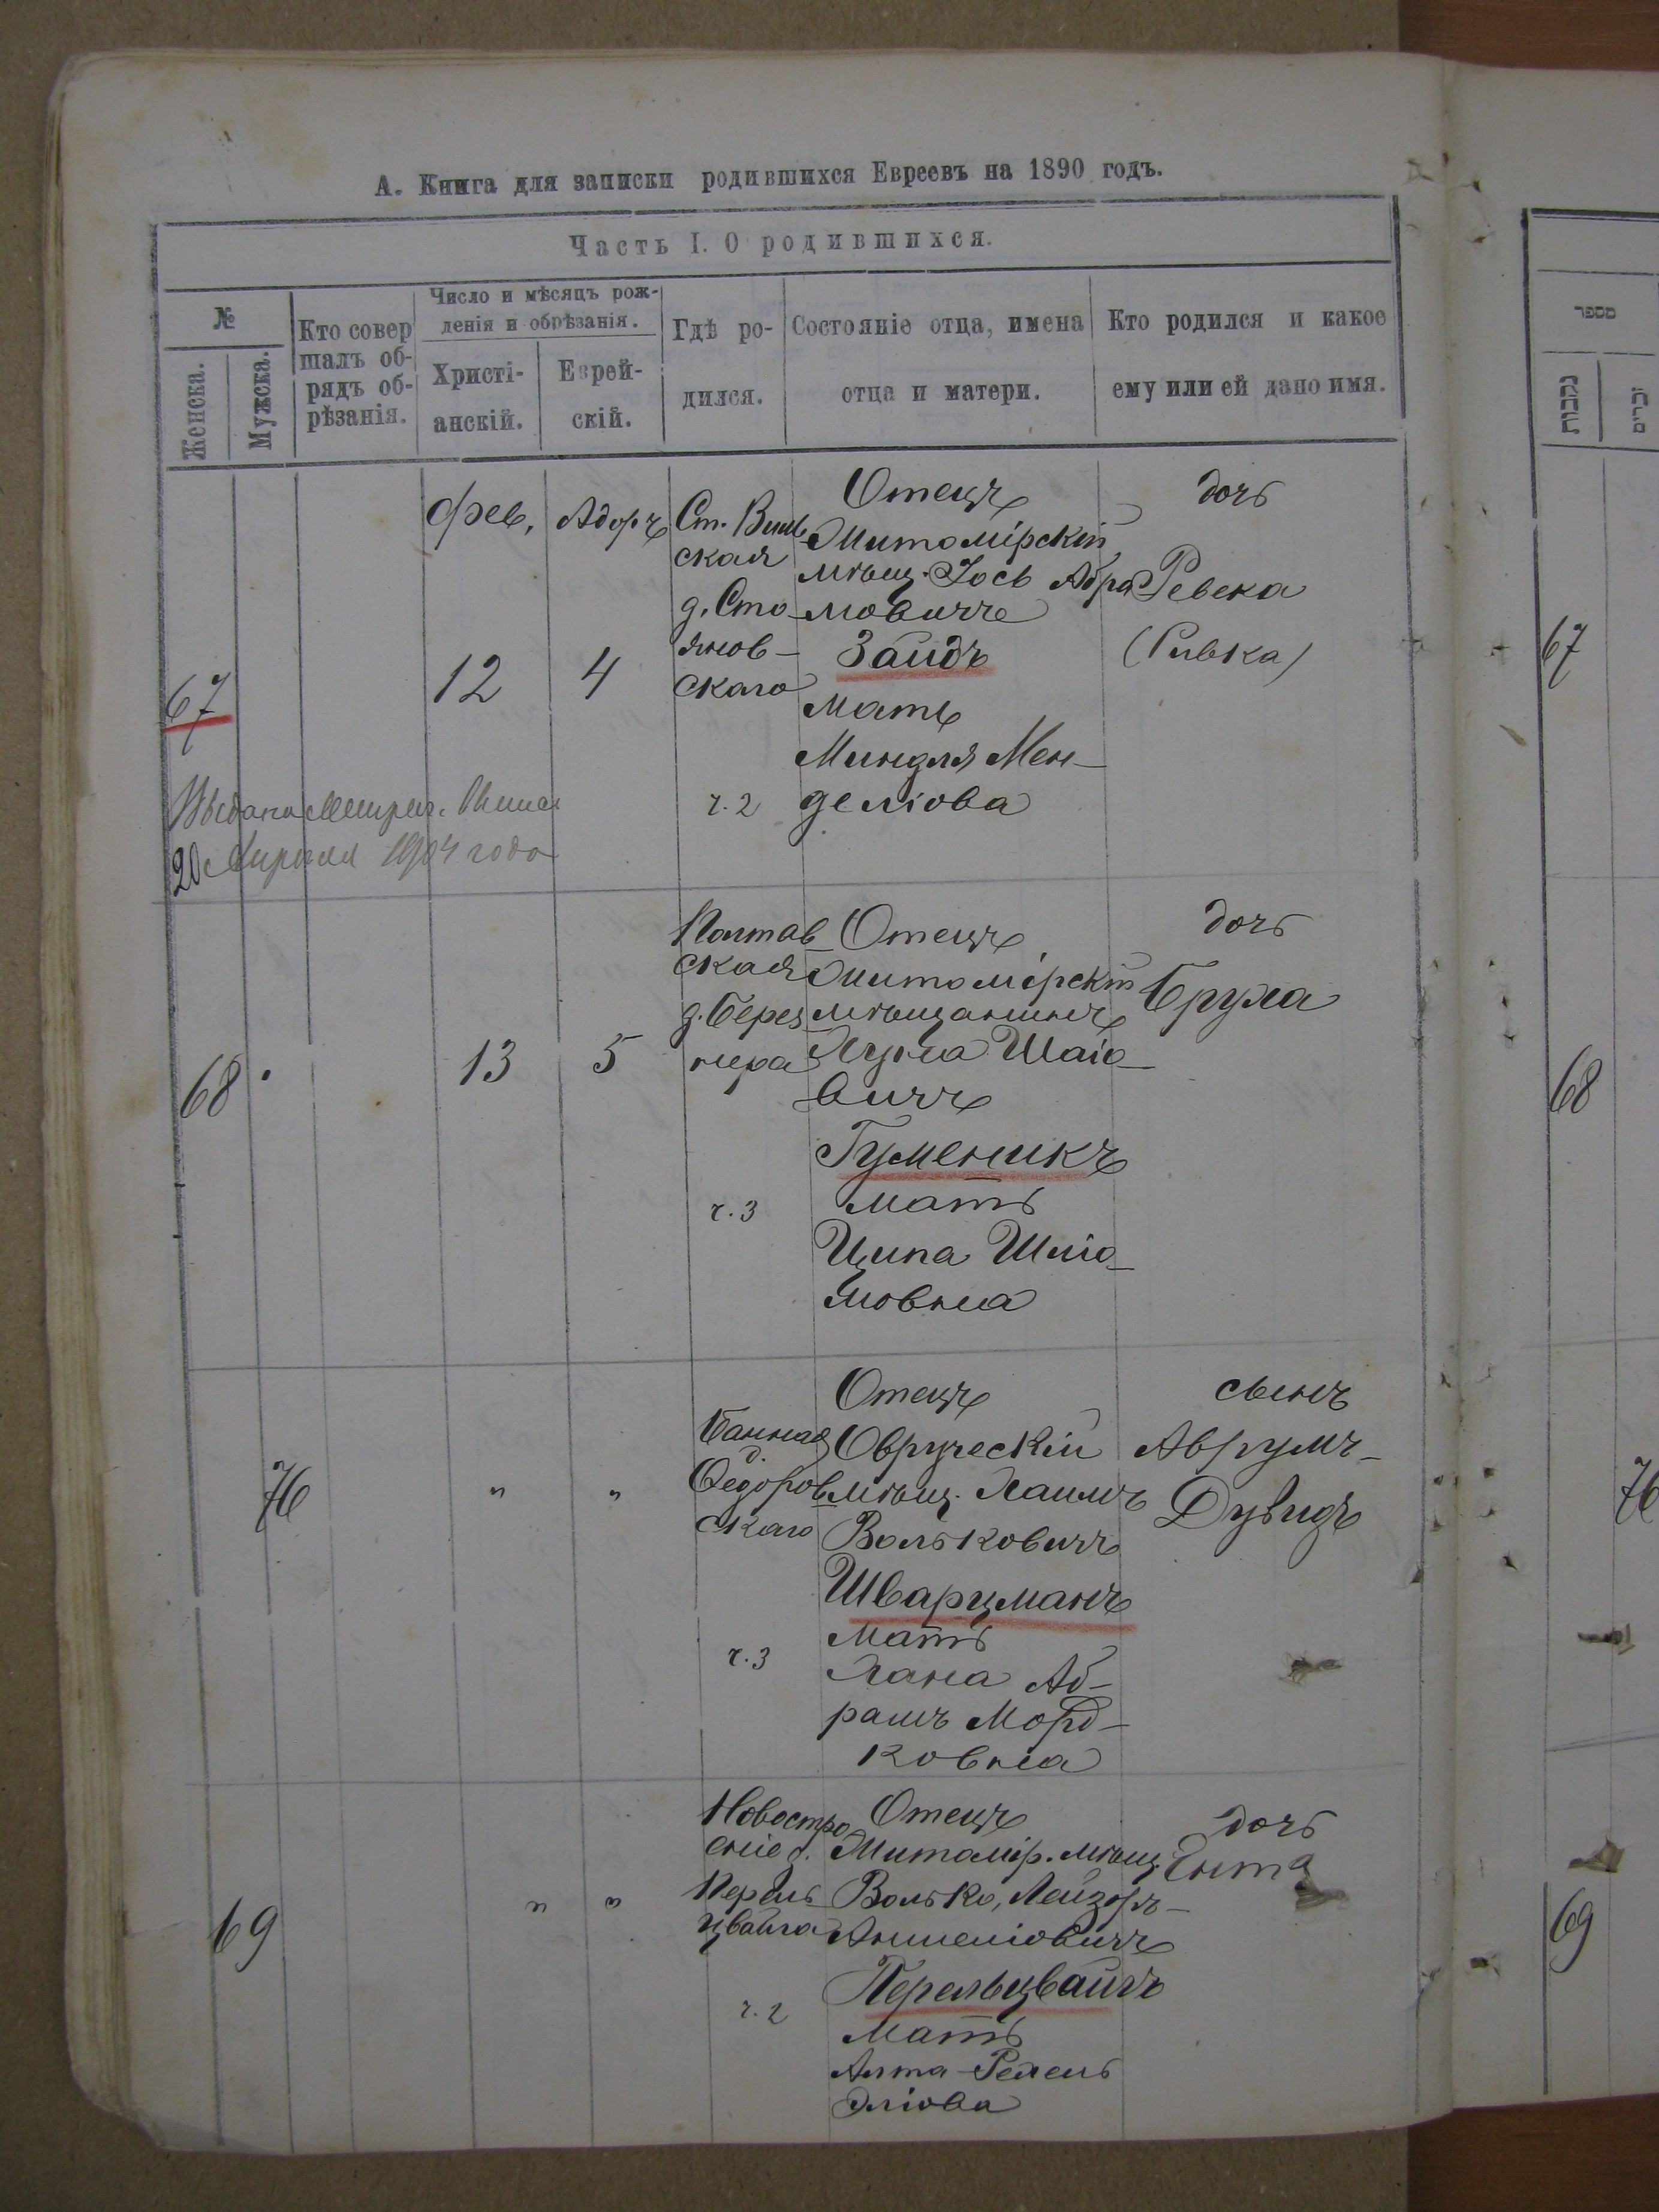 А. Книга для записки родившихся Евреевъ на 1890 годъ.
Часть I. О родившихся.
№
Женска.
Мужска.
Кто совер
шалъ об-
рядъ об-
рѣзанія.
Число и мѣсяцъ рож-
денія и обрѣзанія.
Христі-
анскій.
Еврей-
скій.
Гдѣ ро-
дился.
Состояніе отца, имена
отца и матери.
Кто родился и какое
ему или ей дано имя.
מספר
נקבות
זכרים
67
12
4
Фев.
Адоръ
Ст. Виль
ская
д. Сто
янов-
скаго
ч. 2
Отецъ
Житомірскій
мѣщ. Іось Абра
мовичъ
Зайдъ
Мать
Миндля Мен-
деліова
дочь
Ревека
(Ривка)
Выдана Метрич.
20 Апреля 1904 года
67
68
13
5
Полтав
ская
д. Берез
нера
ч. 3
Отецъ
Житомірскій
мѣщанинъ
Шаіо-
вичъ
Гуменикъ
мать
Ципа Шліо-
мовна
дочь
Бруха
68
76
"
"
Банная
д.
Федоров
скаго
ч. 3
Отецъ
Овруческій
мѣщ. Хаимъ
Вольковичъ
Шварцманъ
мать
Хана Аб-
рамъ Морд-
ковна
сынъ
Аврумъ-
Дувидъ
76
69
"
"
Новостро
еніе д.
Перель
цвайга
ч. 2
Отецъ
Житомір. мѣщ.
Волько, Лейзоръ-
Аншеліовичъ
Перельцвайгъ
мать
Алта-Рехель
Эліова
дочь
Ента
69